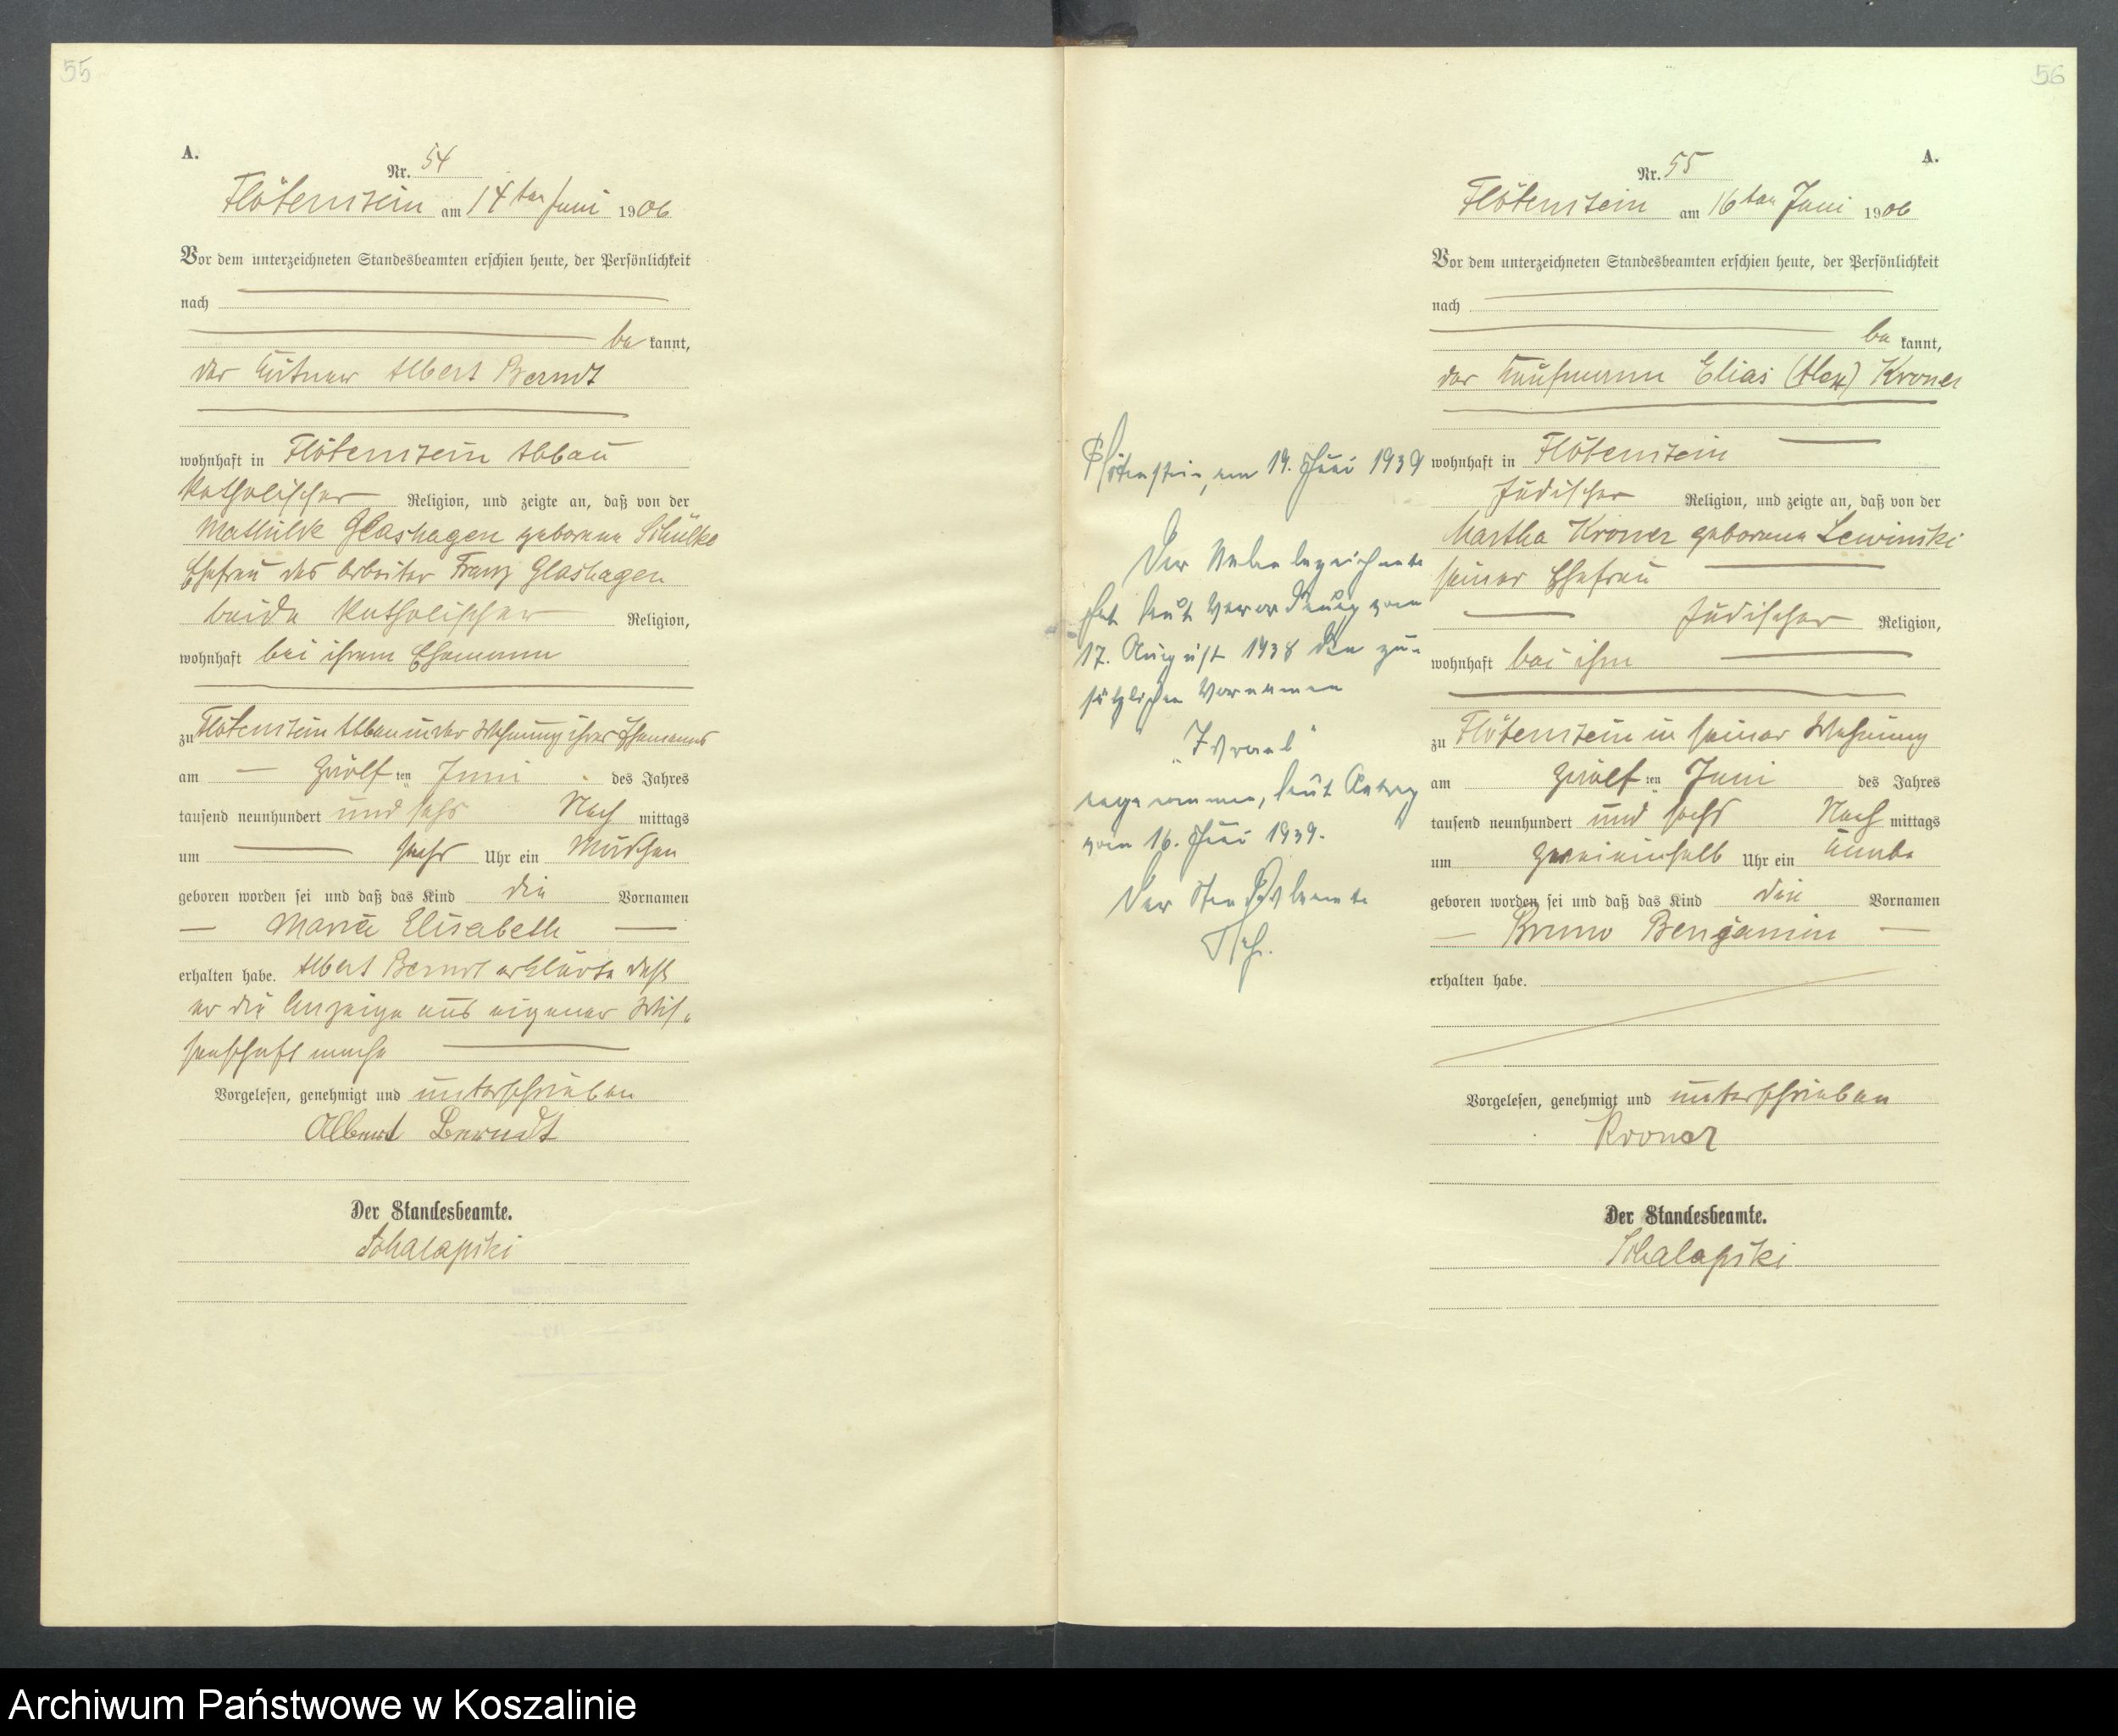 55
A.
Nr. 54
Flötenstein am 14ten Juni 1906
Vor dem unterzeichneten Standesbeamten erschien heute, der Persönlichkeit
nach
be kannt,
der Albert Berndt
wohnhaft in Flötenstein Abbau
katholischer Religion, und zeigte an, daß von der
Mathilde Glashagen geborene Schülke
Ehefrau des Arbeiter Franz Glashagen
beide katholischer Religion,
wohnhaft bei ihrem Ehemann
zu Flötenstein Abbau in der Wohnung ihres Ehemanns
am zwölf ten Juni des Jahres
tausend neunhundert und sechs Nach mittags
um sechs Uhr ein Mädchen
geboren worden sei und daß das Kind die Vornamen
Maria Elisabeth
erhalten habe. Albert Berndt erklärte daß
er die Anzeige aus eigener Wis-
senschaft mache
Vorgelesen, genehmigt und unterschrieben
Albert Berndt
Der Standesbeamte.
Schalapski
56
A.
Nr. 55
Flötenstein am 16ten Juni 1906
Vor dem unterzeichneten Standesbeamten erschien heute, der Persönlichkeit
nach
be kannt,
der Kaufmann Elias (Alex) Kroner
wohnhaft in Flötenstein
jüdischer Religion, und zeigte an, daß von der
Martha Kroner geborene Lewinski
seiner Ehefrau
jüdischer Religion,
wohnhaft bei ihm
zu Flötenstein in seiner Wohnung
am zwölf ten Juni des Jahres
tausend neunhundert und sechs Nach mittags
um zweieinhalb Uhr ein Knabe
geboren worden sei und daß das Kind die Vornamen
Bruno Benjamin
erhalten habe.
Vorgelesen, genehmigt und unterschrieben
Kroner
Der Standesbeamte.
Schalapski
Flötenstein, am 19. Juni 1939
Der Nebenbezeichnete
hat laut Verordnung vom
17. August 1938 den zu-
sätzlichen Vornamen
„Israel"
angenommen, laut Antrag
vom 16. Juni 1939.
Der Standesbeamte
Archiwum Państwowe w Koszalinie